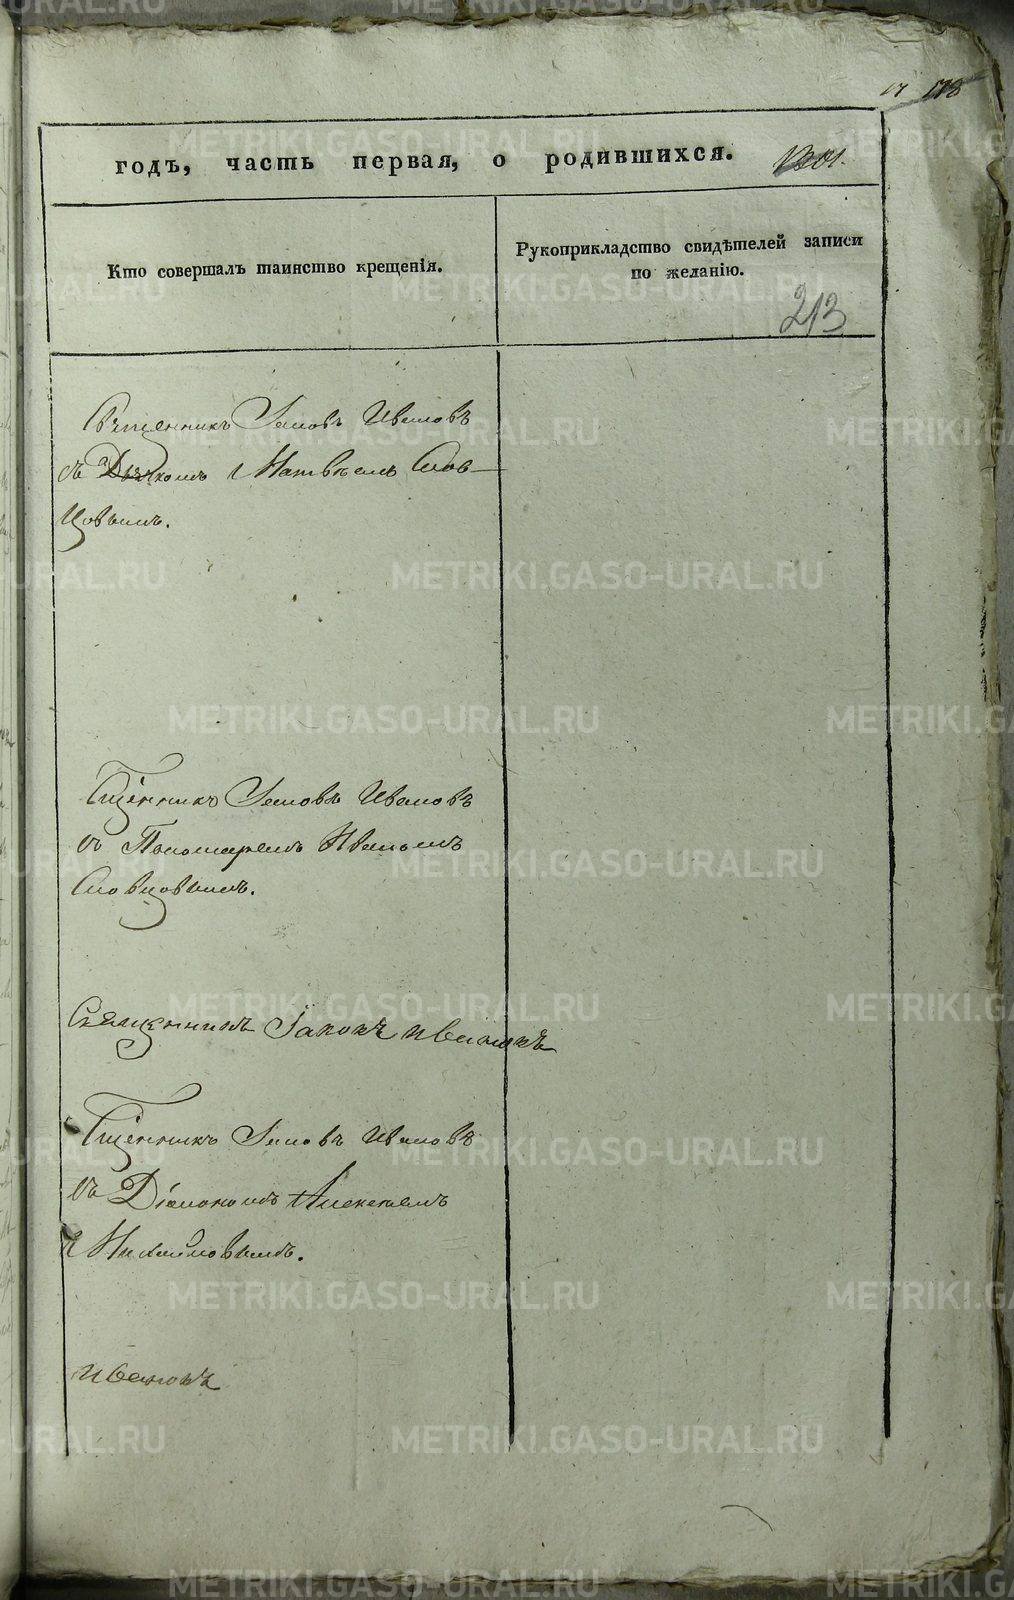 178
годъ, часть первая, о родившихся.
Кто совершалъ таинство крещенія.
Рукоприкладство свидѣтелей записи
по желанію.
213
Священникъ Іаковъ Ивановъ
съ Дьячкомъ Матвѣемъ Слов-
цовымъ.
Сщенникъ Іаковъ Ивановъ
съ Пономаремъ Иваномъ
Словцовымъ.
Священникъ Іаковъ Ивановъ
Сщенникъ Іаковъ Ивановъ
съ Діакономъ Алексеемъ
Михайловымъ.
Ивановъ
METRIKI.GASO-URAL.RU